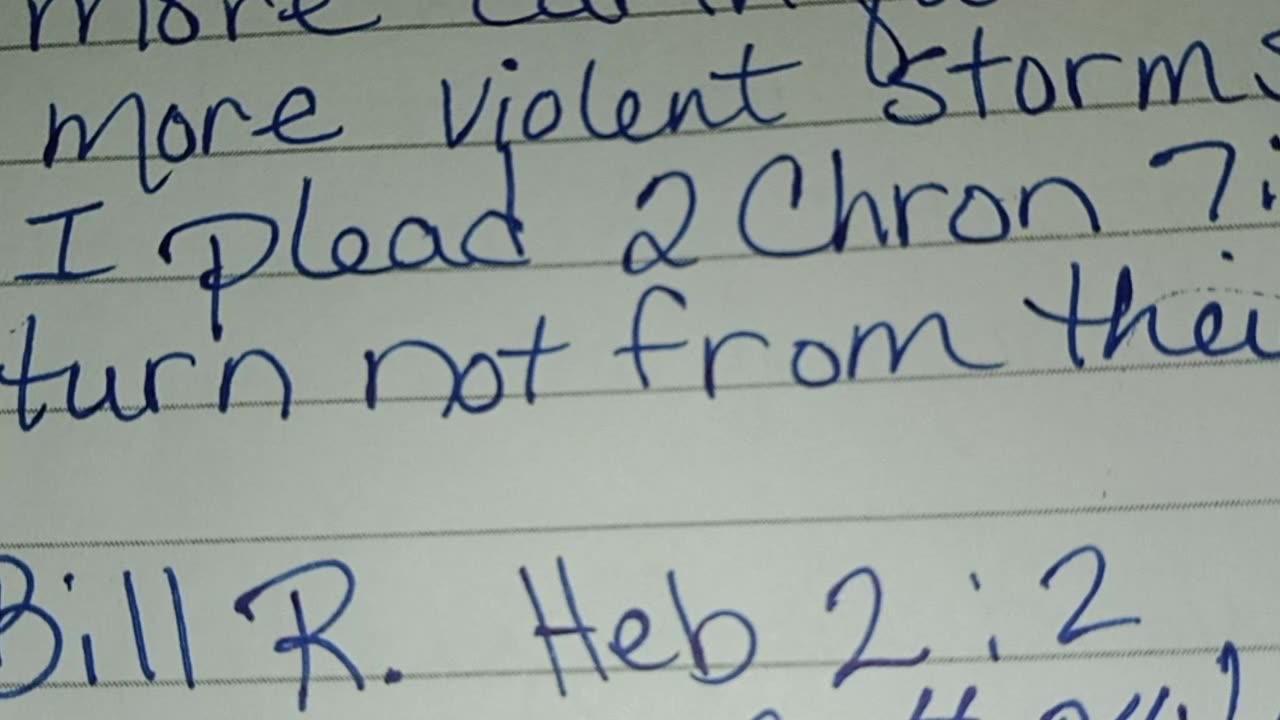 more
more violent storms
I plead 2 Chron 7:
turn not from thei
Bill R. Heb 2:2